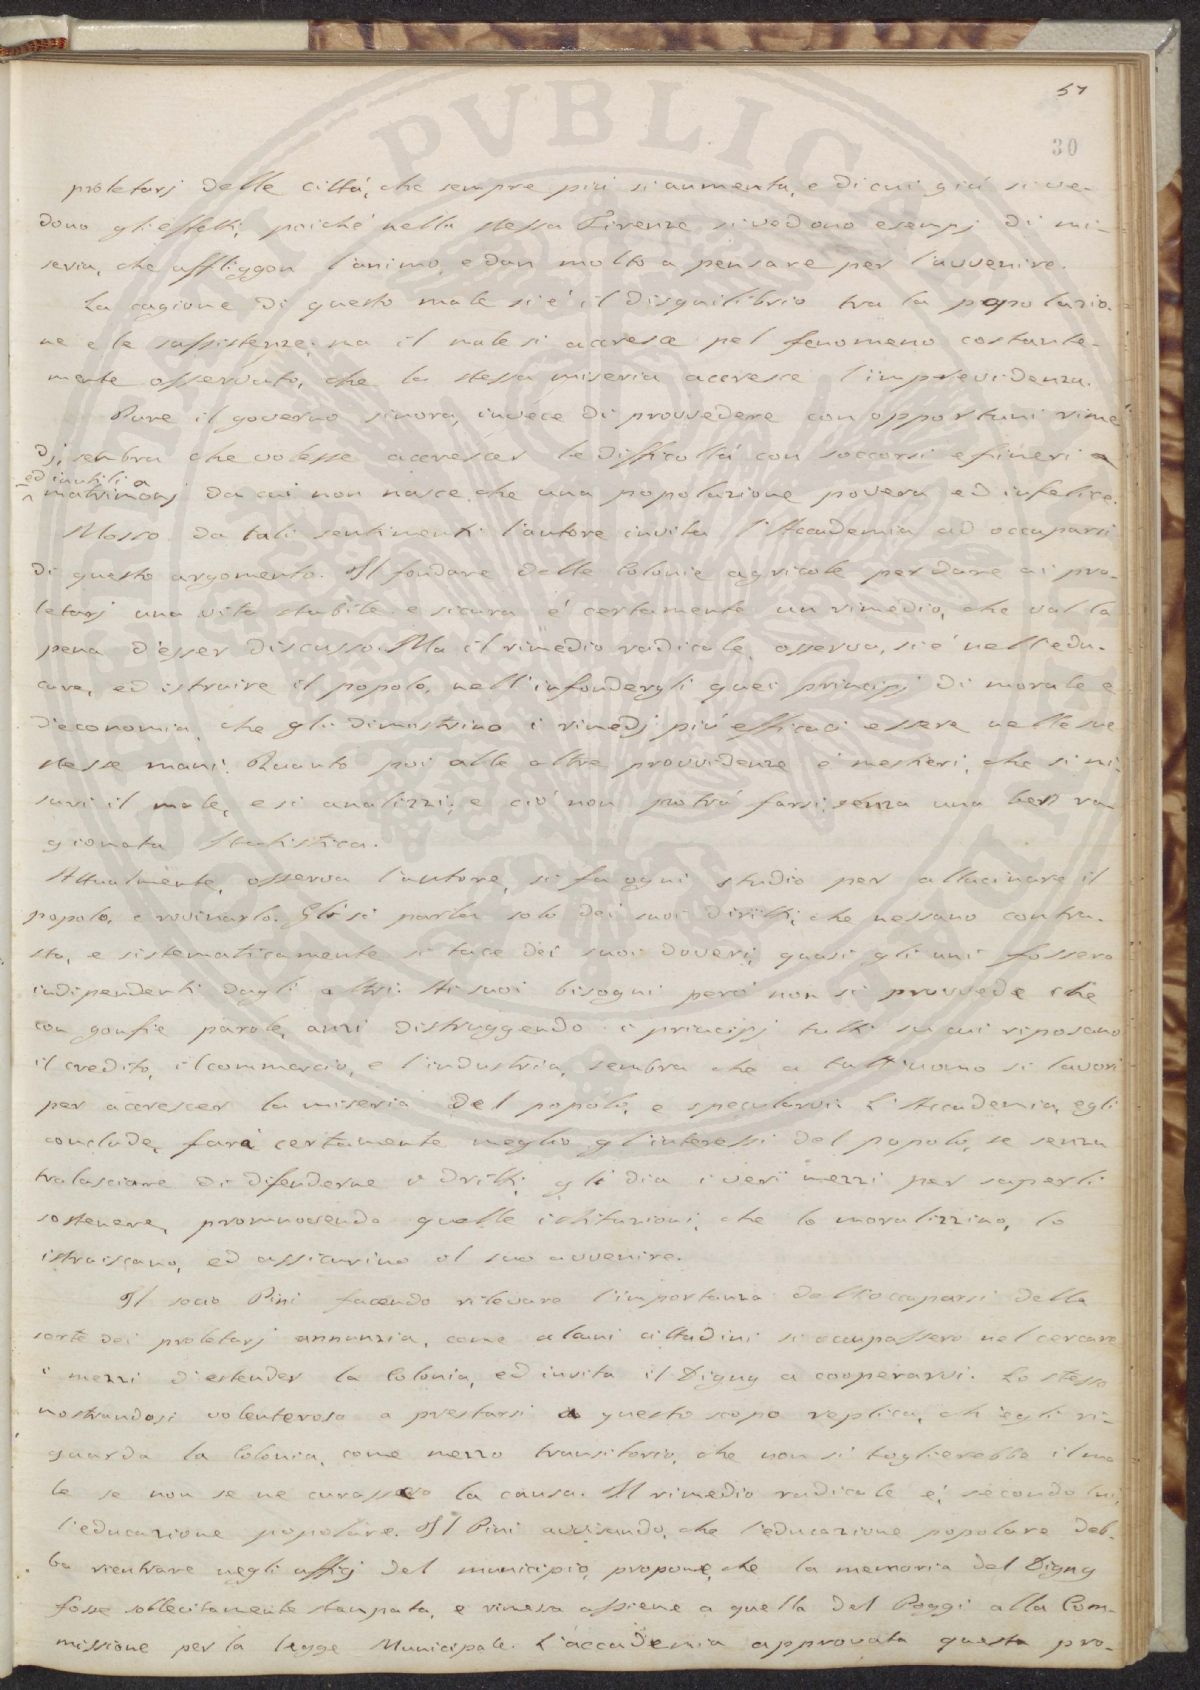 57
30
proletarj delle cittá, che sempre piú si aumenta, e di cui giá si ve-
dono gli effetti, poiché nella stessa Firenze si vedono esempj di mi-
seria, che affliggon l'animo, e dan molto a pensare per l'avvenire.
La cagione di questo male si é il disquilibrio tra la popolazio-
ne e le sussistenze; ma il male si accresce pel fenomeno costante-
mente osservato, che la stessa miseria accresce l'imprevidenza.
Pure il governo sinora, invece di provvedere con opportuni rime
dj, sembra che volesse accrescer le difficoltá con soccorsi efimeri
ed inutili a
matrimonj da cui non nasce, che una popolazione povera ed infelice.
Mosso da tali sentimenti l'autore invita l'Accademia ad occuparsi
di questo argomento. Il fondare delle Colonie agricole per dare ai pro-
letarj una vita stabile e sicura é certamente un rimedio, che val la
pena d'esser discusso. Ma il rimedio radicale, osserva, si é nell'edu-
care, ed istruire il popolo, nell'infondergli quei principj di morale e
d'economia, che gli dimostrino i rimedj piú efficaci essere nelle sue
stesse mani. Quanto poi alle altre provvidenze é mestieri, che si mi-
suri il male, e si analizzi; e ció non potrá farsi, senza una ben ra-
gionata statistica.
Attualmente, osserva l'autore, si fa ogni studio per allucinare il
popolo, e rovinarlo. Gli si parla solo dei suoi diritti, che nessuno contra-
sta, e sistematicamente si tace dei suoi doveri, quasi gli uni fossero
indipendenti dagli altri. Ai suoi bisogni peró non si provvede che
con gonfie parole, anzi distruggendo i principj tutti su cui riposano
il credito, il commercio, e l'industria, sembra che a tutt'uomo si lavori
per accrescer la miseria del popolo, e specularvi. L'Accademia, egli
conclude, fará certamente meglio gl'interessi del popolo, se senza
tralasciare di difenderne i dritti, gli dia i veri mezzi per saperli
sostenere, promuovendo quelle istituzioni, che lo moralizzino, lo
istruiscano, ed assicurino il suo avvenire.
Il socio Pini facendo rilevare l'importanza dell'occuparsi della
sorte dei proletarj annunzia, come alcuni cittadini si occupassero nel cercare
i mezzi d'estender la Colonia, ed invita il Digny a cooperarvi. Lo stesso
mostrandosi volenteroso a prestarsi a questo scopo replica, ch'egli ri-
guarda la Colonia, come mezzo transitorio, che non si toglierebbe il ma
le se non se ne curasse la causa. Il rimedio radicale é, secondo lui,
l'educazione popolare. Il Pini avvisando, che l'educazione popolare deb-
ba rientrare negli uffizj del municipio, propone, che la memoria del Digny
fosse sollecitamente stampata, e rimessa assieme a quella del Poggi alla Com-
missione per la legge Municipale. L'accademia approvata questa pro-